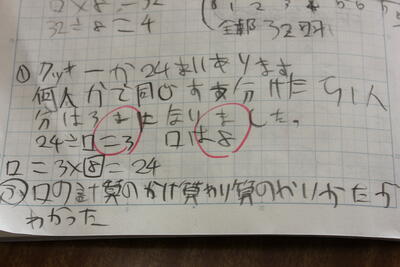 □×8=32
32÷8=4
0 1 2 3 4 5 6
全部32羽
① クッキーが24まいあります。
何人かで同じすう分けたら1人
分は3まいになりました。
24÷□=3 □は8
□=3×8=24
㋡□の計算のかけ算わり算のやりかたが
わかった